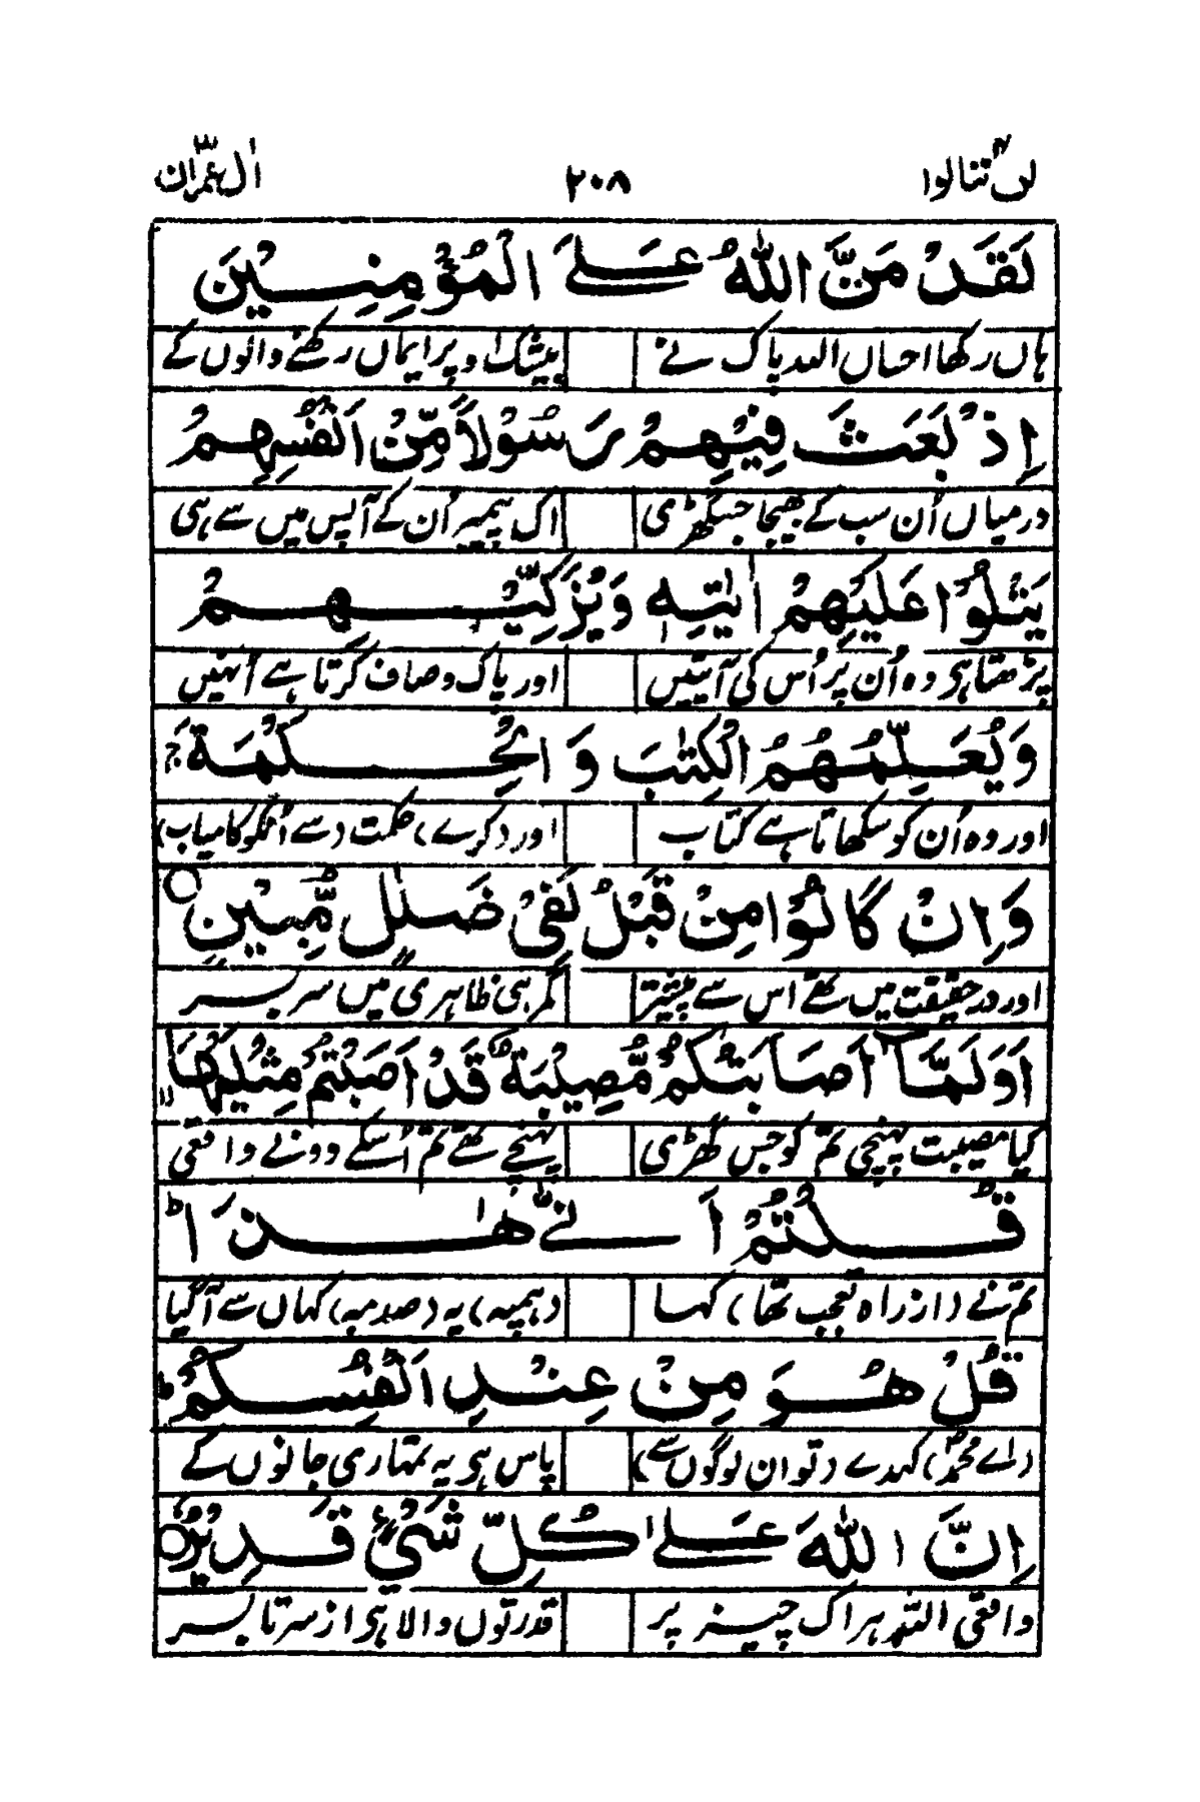 لن تنالوا ۴ ۲۰۸ اٰل عمرٰن ۳
لَقَدْ مَنَّ اللّٰهُ عَلَى الْمُؤْمِنِیْنَ
ہاں رکھا احساں اللہ پاک نے بیشک اوپر ایماں رکھنے والوں کے
اِذْ بَعَثَ فِیْهِمْ رَسُوْلًا مِّنْ اَنْفُسِهِمْ
درمیاں اُن سب کے بھیجا جس گھڑی اک پیمبر اُن کے آپس میں سے ہی
یَتْلُوْا عَلَیْهِمْ اٰیٰتِهٖ وَیُزَكِّیْهِمْ
پڑھتا ہی وہ اُن پر اُس کی آیتیں اور پاک و صاف کرتا ہے اُنہیں
وَیُعَلِّمُهُمُ الْكِتٰبَ وَ الْحِكْمَةَ ۚ
اور وہ اُن کو سکھاتا ہے کتاب اور (کرے) حکمت (سے اُنکو کامیاب)
وَاِنْ كَانُوْا مِنْ قَبْلُ لَفِیْ ضَلٰلٍ مُّبِیْنٍ ○
اور درحقیقت میں تھے اس سے پیشتر گمرہی ظاہری میں سربسر
اَوَلَمَّاۤ اَصَابَتْكُمْ مُّصِیْبَةٌ قَدْ اَصَبْتُمْ مِّثْلَیْهَا ۙ
کیا مصیبت پہنچی تم کو جس گھڑی پہنچے تھے تم اُسکے دونے واقعی
قُلْتُمْ اَنّٰی هٰذَا ؕ
تم نے (از راہ تعجب تھا) کہا (ہمپہ) یہ (صدمہ) کہاں سے آ گیا
قُلْ هُوَ مِنْ عِنْدِ اَنْفُسِكُمْ ؕ
(اے محمدؐ) کہدے (تو ان لوگوں سے) پاس ہی یہ تمہاری جانوں کے
اِنَّ اللّٰهَ عَلٰی كُلِّ شَیْءٍ قَدِیْرٌ ○
واقعی اللہ ہر اک چیز پر قدرتوں والا ہی از سر تا بسر